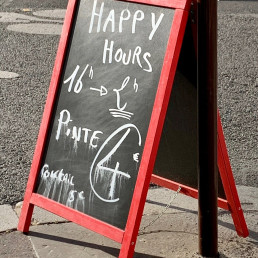 HAPPY
HOURS
16h →
PINTE 4€
COCKTAIL 5€